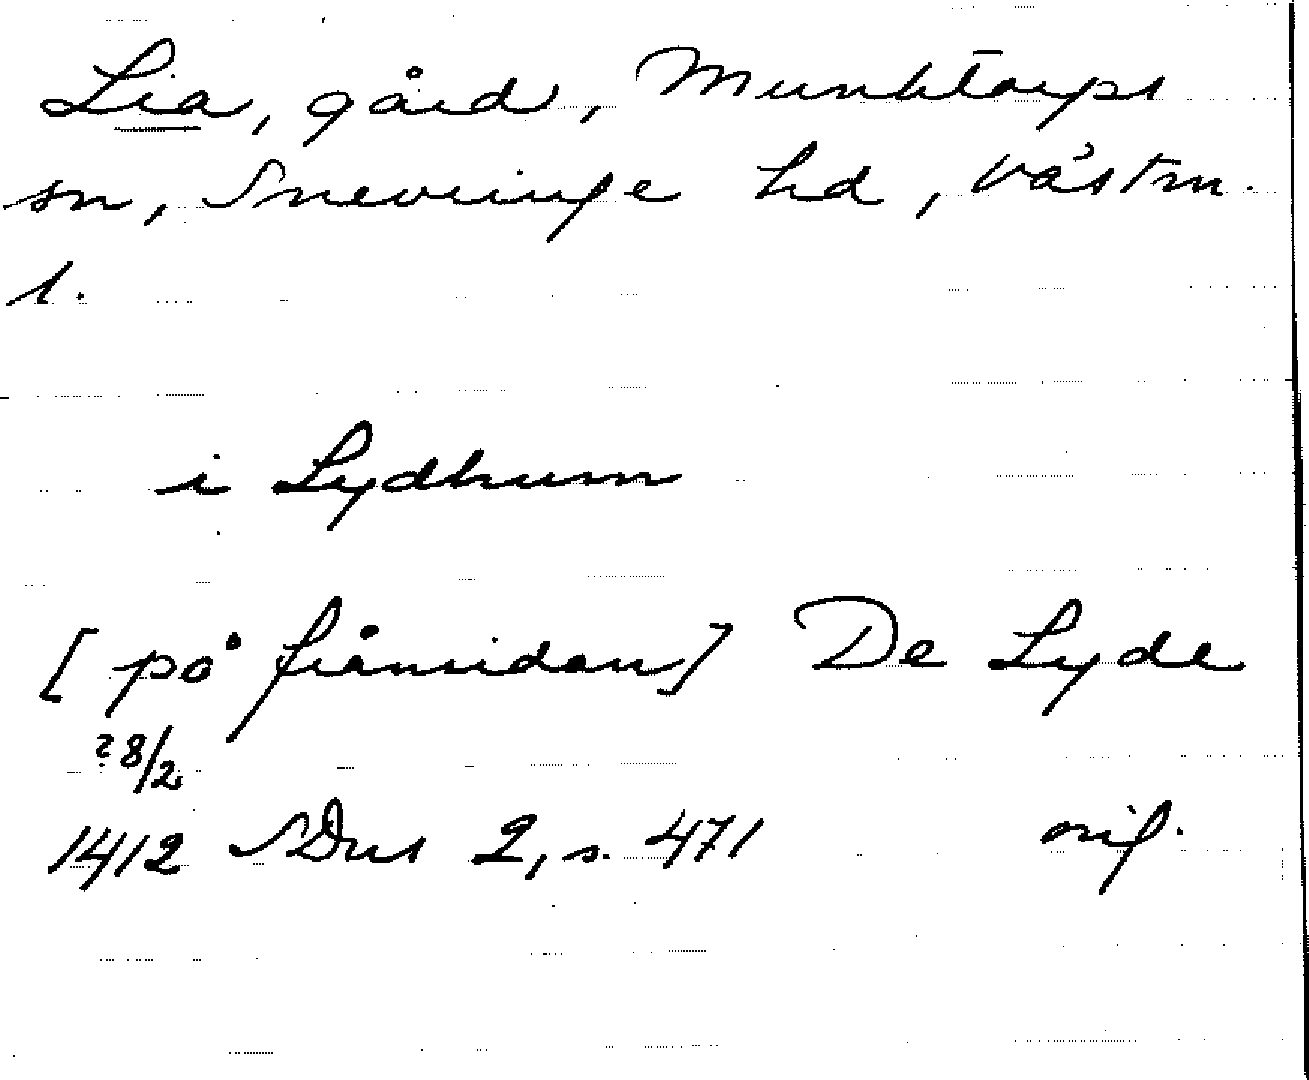 Lia, gård, Munktorps
sn, Snevringe hd, Västm.
l.
i Lydhum
[på frånsidan] De Lyde
? 8/2
1412 SDns 2, s. 471 orig.